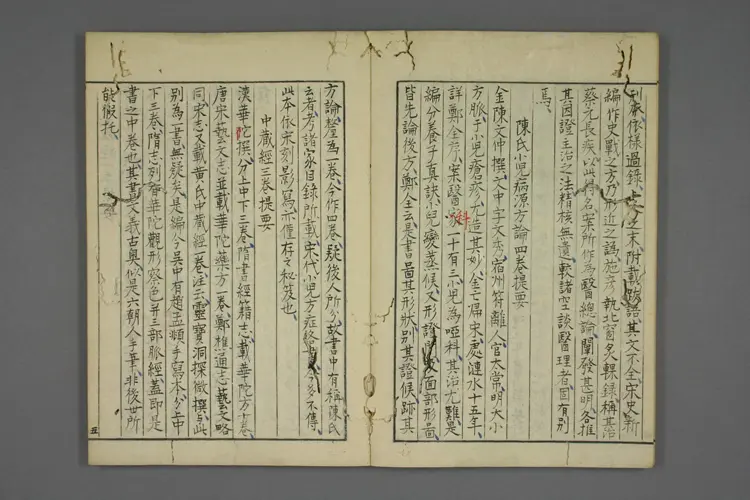 刊齋依樣過錄上文之末附載跋語其文不全宋史新
編作史戰之方乃形近之譌施彥執北窗炙輠錄稱其治
蔡元長疾以此得名案所作為醫總論闡發甚明各推
其因證主治之法精核無遺較諸空談醫理者固有別
焉
陳氏小兒病源方論四卷提要
金陳文仲撰文中字文秀宿州符離人官太常明大小
方脈于小兒瘡疹尤造其妙金亡歸宋處漣水十五年
詳鄭全序案醫家科一十有三小兒為啞科其治尤難是
編分養子真訣小兒變蒸候又形證門及面部形圖
皆先論後方鄭全云是書圖其形狀別其證候跡其
方論釐為一卷今作四卷疑後人所分故書中有稱陳氏
云者考諸家目錄所載宋代小兒方症今多不傳
此本依宋刻影寫亦僅存之秘笈也
中藏經三卷提要
漢華陀撰分上中下三卷隋書經籍志載華陀方十卷
唐宋藝文志並載華陀藥方一卷鄭樵通志藝文略
同宋志又載黃氏中藏經一卷注云靈寶洞探微撰与此
別為一書無疑矣是編分吳中有趙孟頫手寫本分上中
下三卷隋志列有華陀觀形察色并三部脈經蓋即是
書之中卷也其書文義古奧似是六朝人手筆非後世所
能假托
五